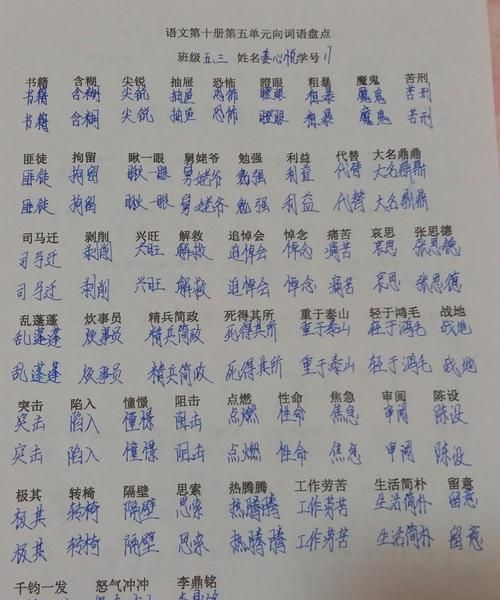 语文第十册第五单元向词语盘点
班级五.三 姓名娄心悦学号17
书籍 含糊 尖锐 抽屉 恐怖 瞪眼 粗暴 魔鬼 苦刑
书籍 含糊 尖锐 抽屉 恐怖 瞪眼 粗暴 魔鬼 苦刑
书籍 含糊 尖锐 抽屉 恐怖 瞪眼 粗暴 魔鬼 苦刑
匪徒 拘留 瞅一眼 舅姥爷 勉强 利益 代替 大名鼎鼎
匪徒 拘留 瞅一眼 舅姥爷 勉强 利益 代替 大名鼎鼎
匪徒 拘留 瞅一眼 舅姥爷 勉强 利益 代替 大名鼎鼎
司马迁 剥削 兴旺 解救 追悼会 悼念 痛苦 哀思 张思德
司马迁 剥削 兴旺 解救 追悼会 悼念 痛苦 哀思 张思德
司马迁 剥削 兴旺 解救 追悼会 悼念 痛苦 哀思 张思德
乱蓬蓬 炊事员 精兵简政 死得其所 重于泰山 轻于鸿毛 战地
乱蓬蓬 炊事员 精兵简政 死得其所 重于泰山 轻于鸿毛 战地
乱蓬蓬 炊事员 精兵简政 死得其所 重于泰山 轻于鸿毛 战地
突击 陷入 憧憬 阻击 点燃 性命 焦急 审阅 陈设
突击 陷入 憧憬 阻击 点燃 性命 焦急 审阅 陈设
突击 陷入 憧憬 阻击 点燃 性命 焦急 审阅 陈设
极其 转椅 隔壁 思索 热腾腾 工作劳苦 生活简朴 留意
极其 转椅 隔壁 思索 热腾腾 工作劳苦 生活简朴 留意
极其 转椅 隔壁 思索 热腾腾 工作劳苦 生活简朴 留意
千钧一发 怒气冲冲 李鼎铭